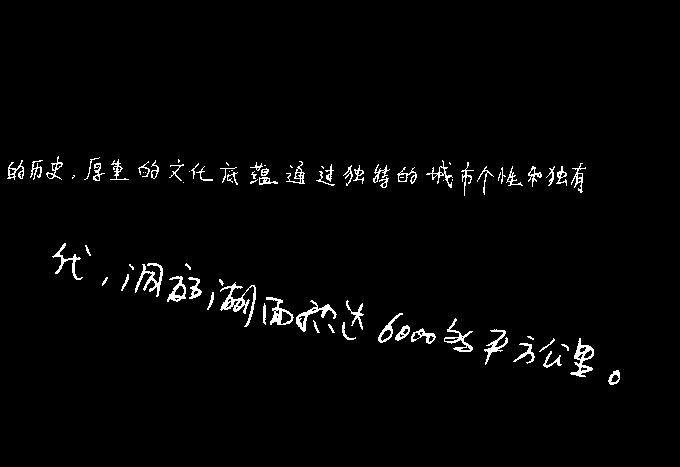 的历史,厚重的文化底蕴通过独特的城市个性和独有
代,洞庭湖面积达6000多平方公里。